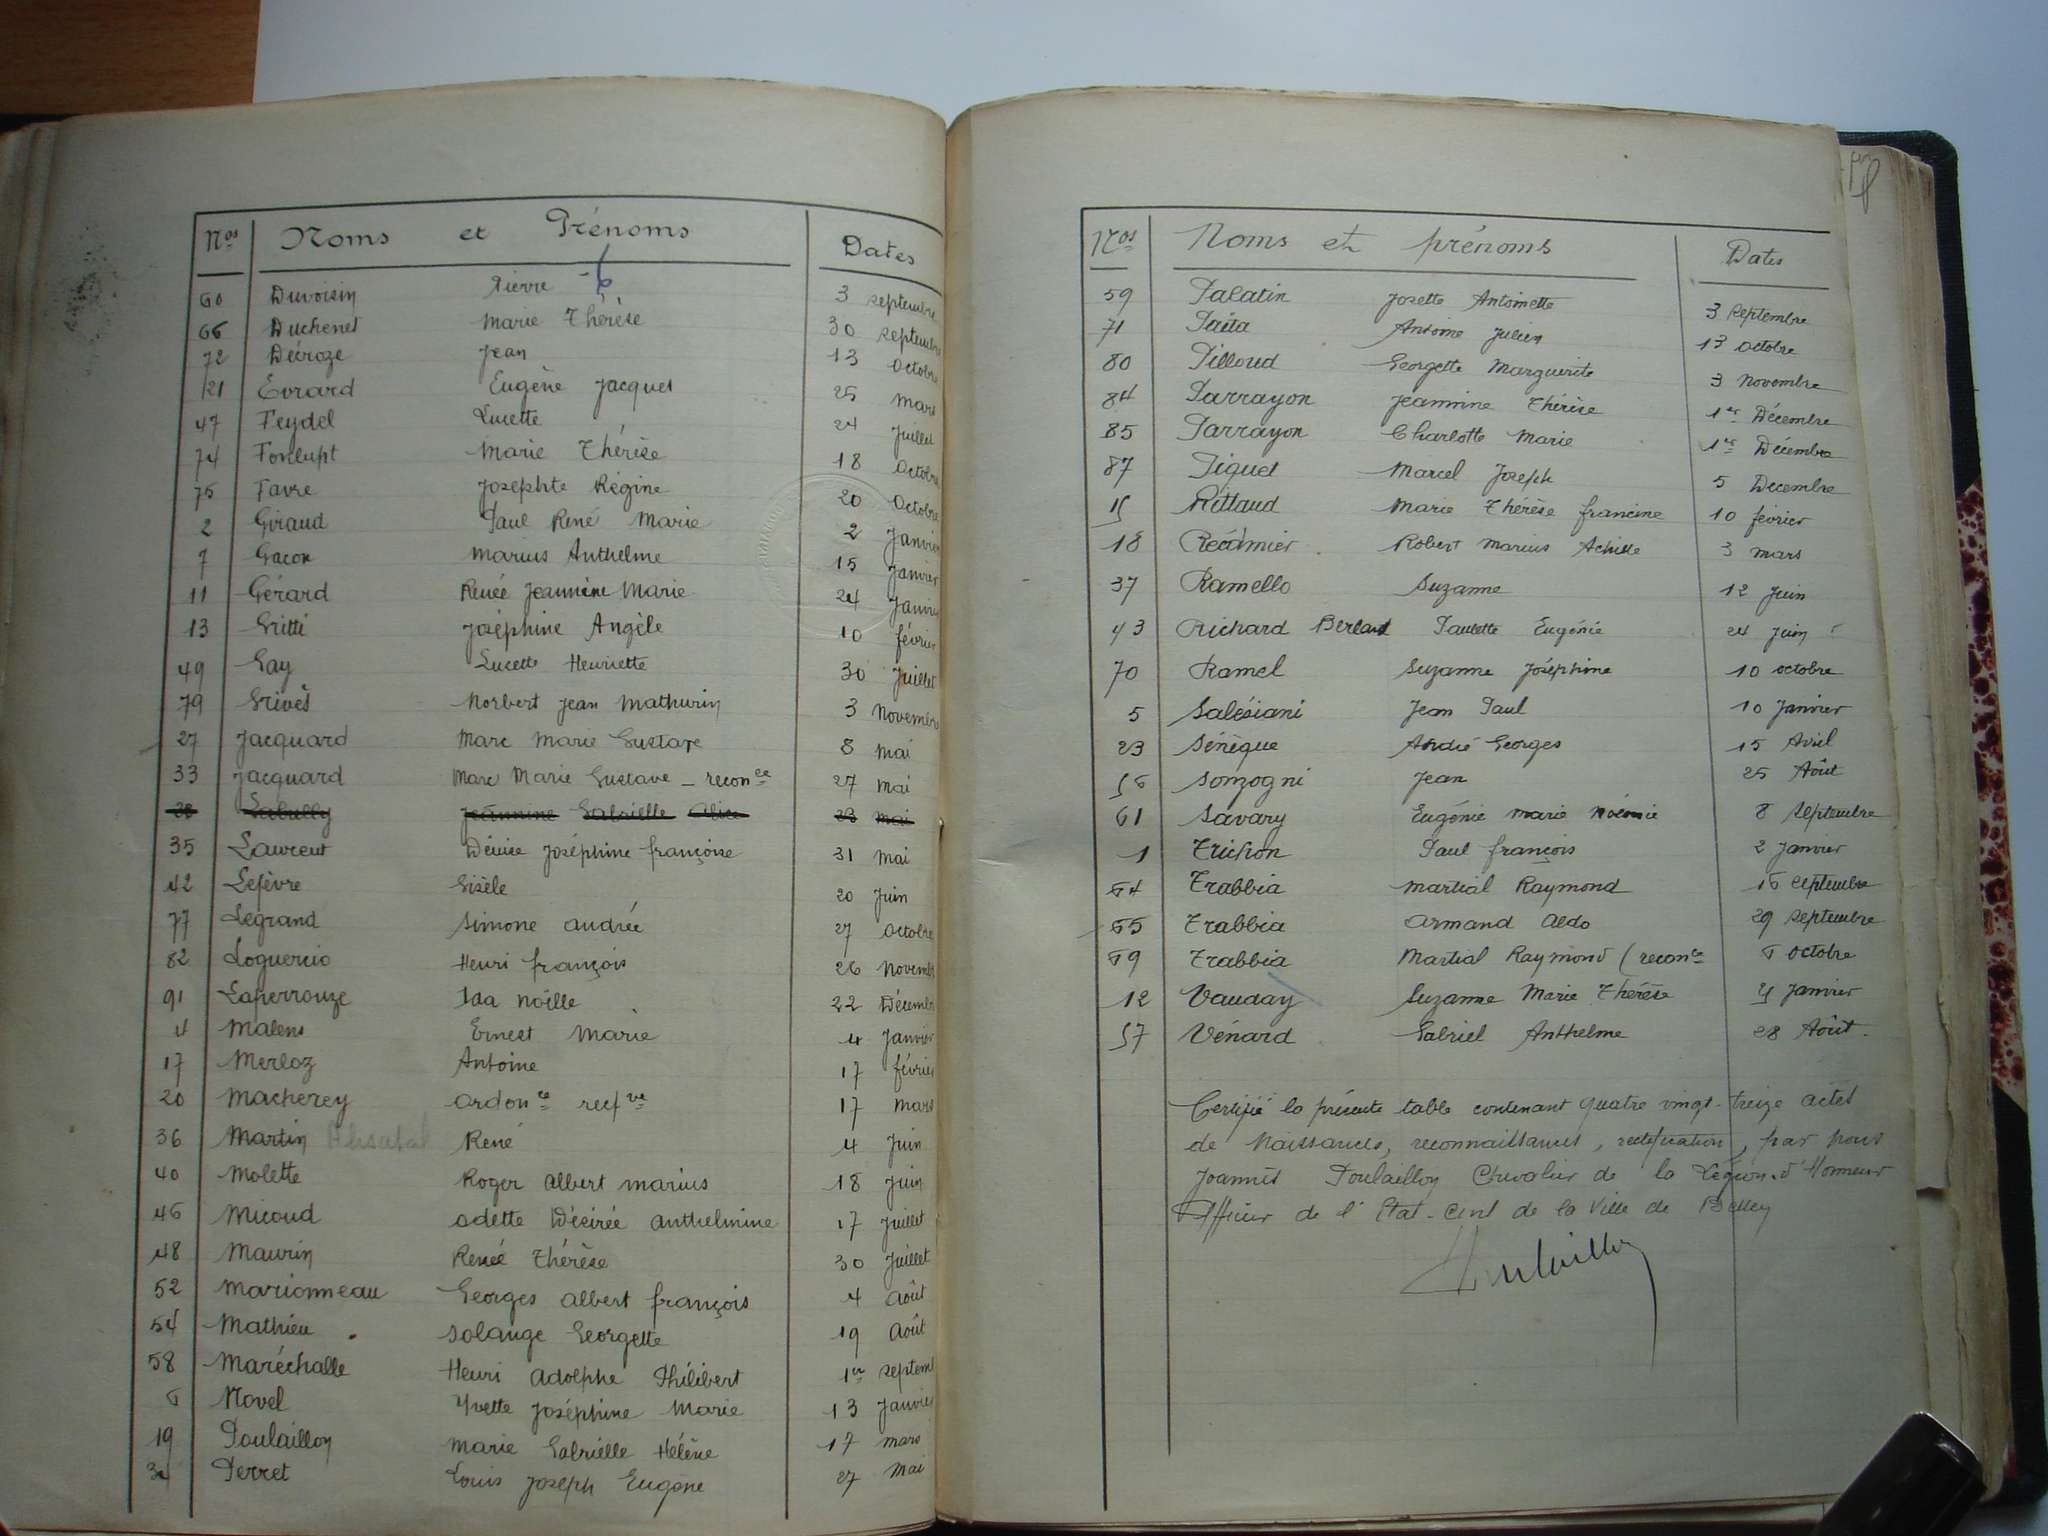 Nos Noms et Prénoms Dates
60 Duvoisin Pierre 3 septembre
66 Duchenet Marie Thérèse 30 septembre
72 Décroze Jean 13 Octobre
21 Evrard Eugène Jacques 25 Mars
47 Feydel Lucette 24 Juillet
74 Fonlupt Marie Thérèse 18 Octobre
75 Favre Josephte Régine 20 Octobre
2 Giraud Paul René Marie 2 Janvier
7 Gacon Marius Anthelme 15 Janvier
11 Gérard Renée Jeannine Marie 24 Janvier
13 Gritti Joséphine Angèle 10 février
49 Gay Lucette Henriette 30 Juillet
79 Grivès Norbert Jean Mathurin 3 Novembre
27 Jacquard Marc Marie Gustave 8 Mai
33 Jacquard Marc Marie Gustave - reconce 27 Mai
28 Labully Jeannine Gabrielle Alice 23 Mai
35 Laurent Dénise Joséphine françoise 31 Mai
42 Lefèvre Gisèle 20 Juin
77 Legrand Simone Andrée 27 Octobre
82 Loquercio Henri françois 26 Novemb
91 Laperrouze Ida Noëlle 22 Décemb
4 Malens Ernest Marie 4 Janvier
17 Merloz Antoine 17 février
20 Macherey Ordonce recfve 17 Mars
36 Martin René 4 Juin
40 Molette Roger Albert Marius 18 Juin
46 Micoud Odette Désirée Anthelmine 17 Juillet
48 Maurin Renée Thérèse 30 Juillet
52 Marionneau Georges Albert françois 4 Août
54 Mathieu Solange Georgette 19 Août
58 Maréchalle Henri Adolphe Philibert 1er Septem
6 Novel Yvette Joséphine Marie 13 Janvier
19 Poulaillon Marie Gabrielle Hélène 17 Mars
34 Perret Louis Joseph Eugène 27 Mai
Nos Noms et prénoms Dates
59 Palatin Josette Antoinette 3 Septembre
71 Païta Antoine Julien 13 Octobre
80 Pilloud Georgette Marguerite 3 Novembre
84 Parrayon Jeannine Thérèse 1er Décembre
85 Parrayon Charlotte Marie 1er Décembre
87 Piquet Marcel Joseph 5 Decembre
15 Rittaud Marie Thérèse francine 10 février
18 Récamier Robert Marius Achille 3 Mars
37 Ramello Suzanne 12 Juin
43 Richard Berland Paulette Eugénie 24 Juin
70 Ramel Suzanne Joséphine 10 octobre
5 Salésiani Jean Paul 10 Janvier
23 Sénèque André Georges 15 Avril
56 Sonzogni Jean 25 Août
61 Savary Eugénie Marie Noémie 8 Septembre
1 Trichon Paul françois 2 Janvier
64 Trabbia Martial Raymond 16 Septembre
65 Trabbia Armand Aldo 29 Septembre
69 Trabbia Martial Raymond (reconce 6 Octobre
12 Vauday Suzanne Marie Thérèse Janvier
57 Vénard Gabriel Anthelme 28 Août.
Certifié la présente table contenant quatre vingt-treize actes
de Naissances, reconnaissances, rectification, par nous
Joannès Poulaillon Chevalier de la Légion d'Honneur
Officier de l'Etat-Civil de la Ville de Belley
Poulaillon